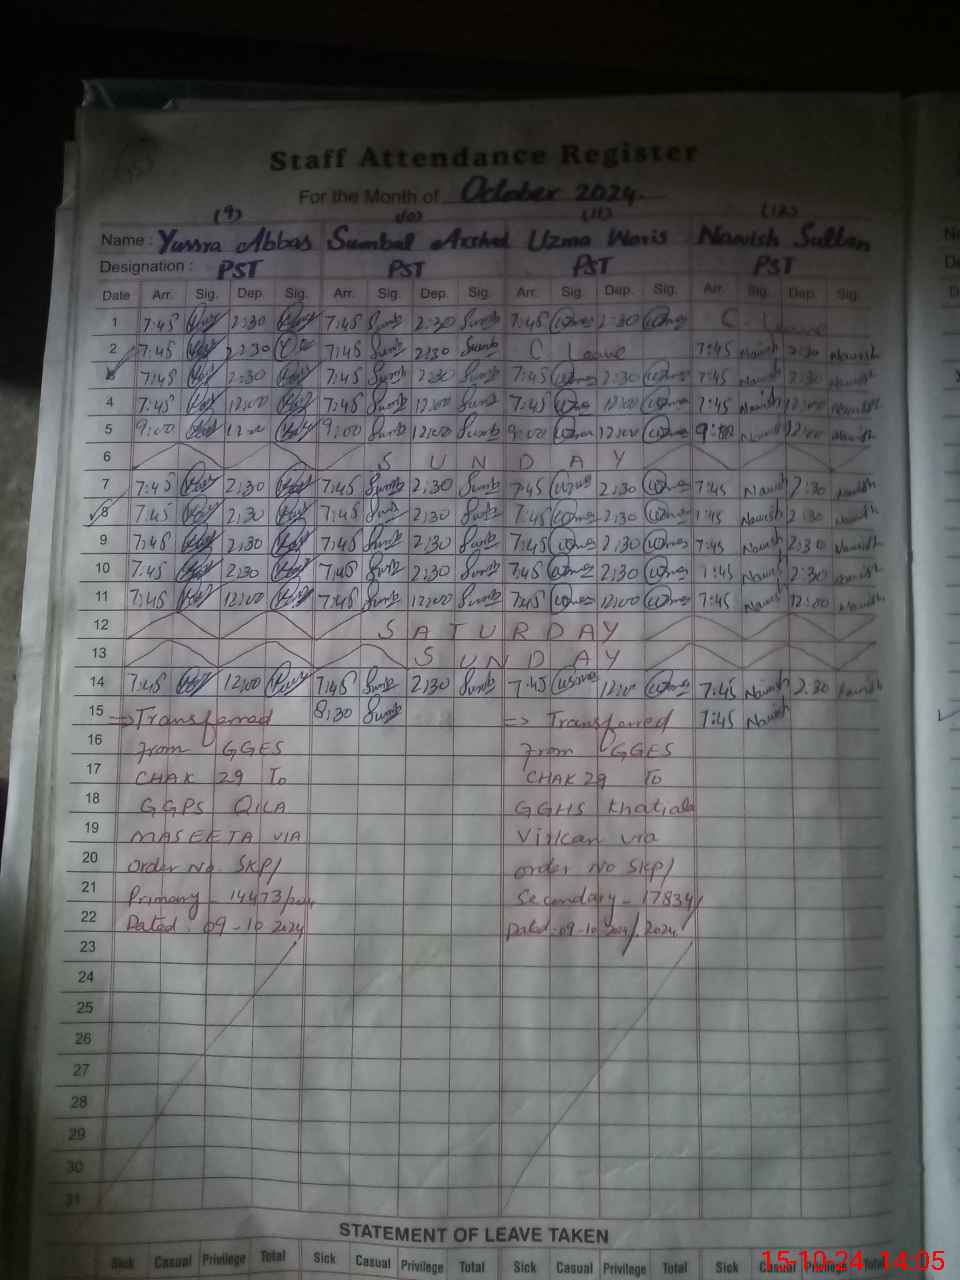 Staff Attendance Register
For the Month of October 2024
(9) (10) (11) (12)
Name : Yussra Abbas Sumbal Arshad Uzma Waris Nawish Sultan
Designation : PST PST PST PST
Date Arr. Sig. Dep. Sig. Arr. Sig. Dep. Sig. Arr. Sig. Dep. Sig. Arr. Sig. Dep. Sig.
1 7:45 2:30 7:45 Sumb 2:30 Sumb 7:45 Uzma 2:30 Uzma C. Leave
2 7:45 2:30 7:45 Sumb 2:30 Sumb C Leave 7:45 Nawish 2:30 Nawish
7:45 2:30 7:45 Sumb 2:30 Sumb 7:45 Uzma 2:30 Uzma 7:45 Nawish 2:30 Nawish
4 7:45 12:00 7:45 Sumb 12:00 Sumb 7:45 Uzma 12:00 Uzma 7:45 Nawish 12:00 Nawish
5 9:00 12:00 9:00 Sumb 12:00 Sumb 9:00 Uzma 12:00 Uzma 9:00 Nawish 12:00 Nawish
6 SUNDAY
7 7:45 2:30 7:45 Sumb 2:30 Sumb 7:45 Uzma 2:30 Uzma 7:45 Nawish 2:30 Nawish
8 7:45 2:30 7:45 Sumb 2:30 Sumb 7:45 Uzma 2:30 Uzma 7:45 Nawish 2:30 Nawish
9 7:45 2:30 7:45 Sumb 2:30 Sumb 7:45 Uzma 2:30 Uzma 7:45 Nawish 2:30 Nawish
10 7:45 2:30 7:45 Sumb 2:30 Sumb 7:45 Uzma 2:30 Uzma 7:45 Nawish 2:30 Nawish
11 7:45 12:00 7:45 Sumb 12:00 Sumb 7:45 Uzma 12:00 Uzma 7:45 Nawish 12:00 Nawish
12 SATURDAY
13 SUNDAY
14 7:45 12:00 7:45 Sumb 2:30 Sumb 7:45 Uzma 12:00 Uzma 7:45 Nawish 2:30 Nawish
15 => Transferred 8:30 Sumb => Transferred 7:45 Nawish
16 From GGES From GGES
17 CHAK 29 To CHAK 29 To
18 GGPS QILA GGHS Khatiala
19 MASEETA VIA Virkan via
20 Order No. SKP/ order No SKP/
21 Primary - 14473/ Secondary - 17834/
22 Dated: 09-10 2024 Dated: 09-10 2024
23
24
25
26
27
28
29
30
31
STATEMENT OF LEAVE TAKEN
Sick Casual Privilege Total Sick Casual Privilege Total Sick Casual Privilege Total Sick Casual Privilege Total
15-10-24 14:05